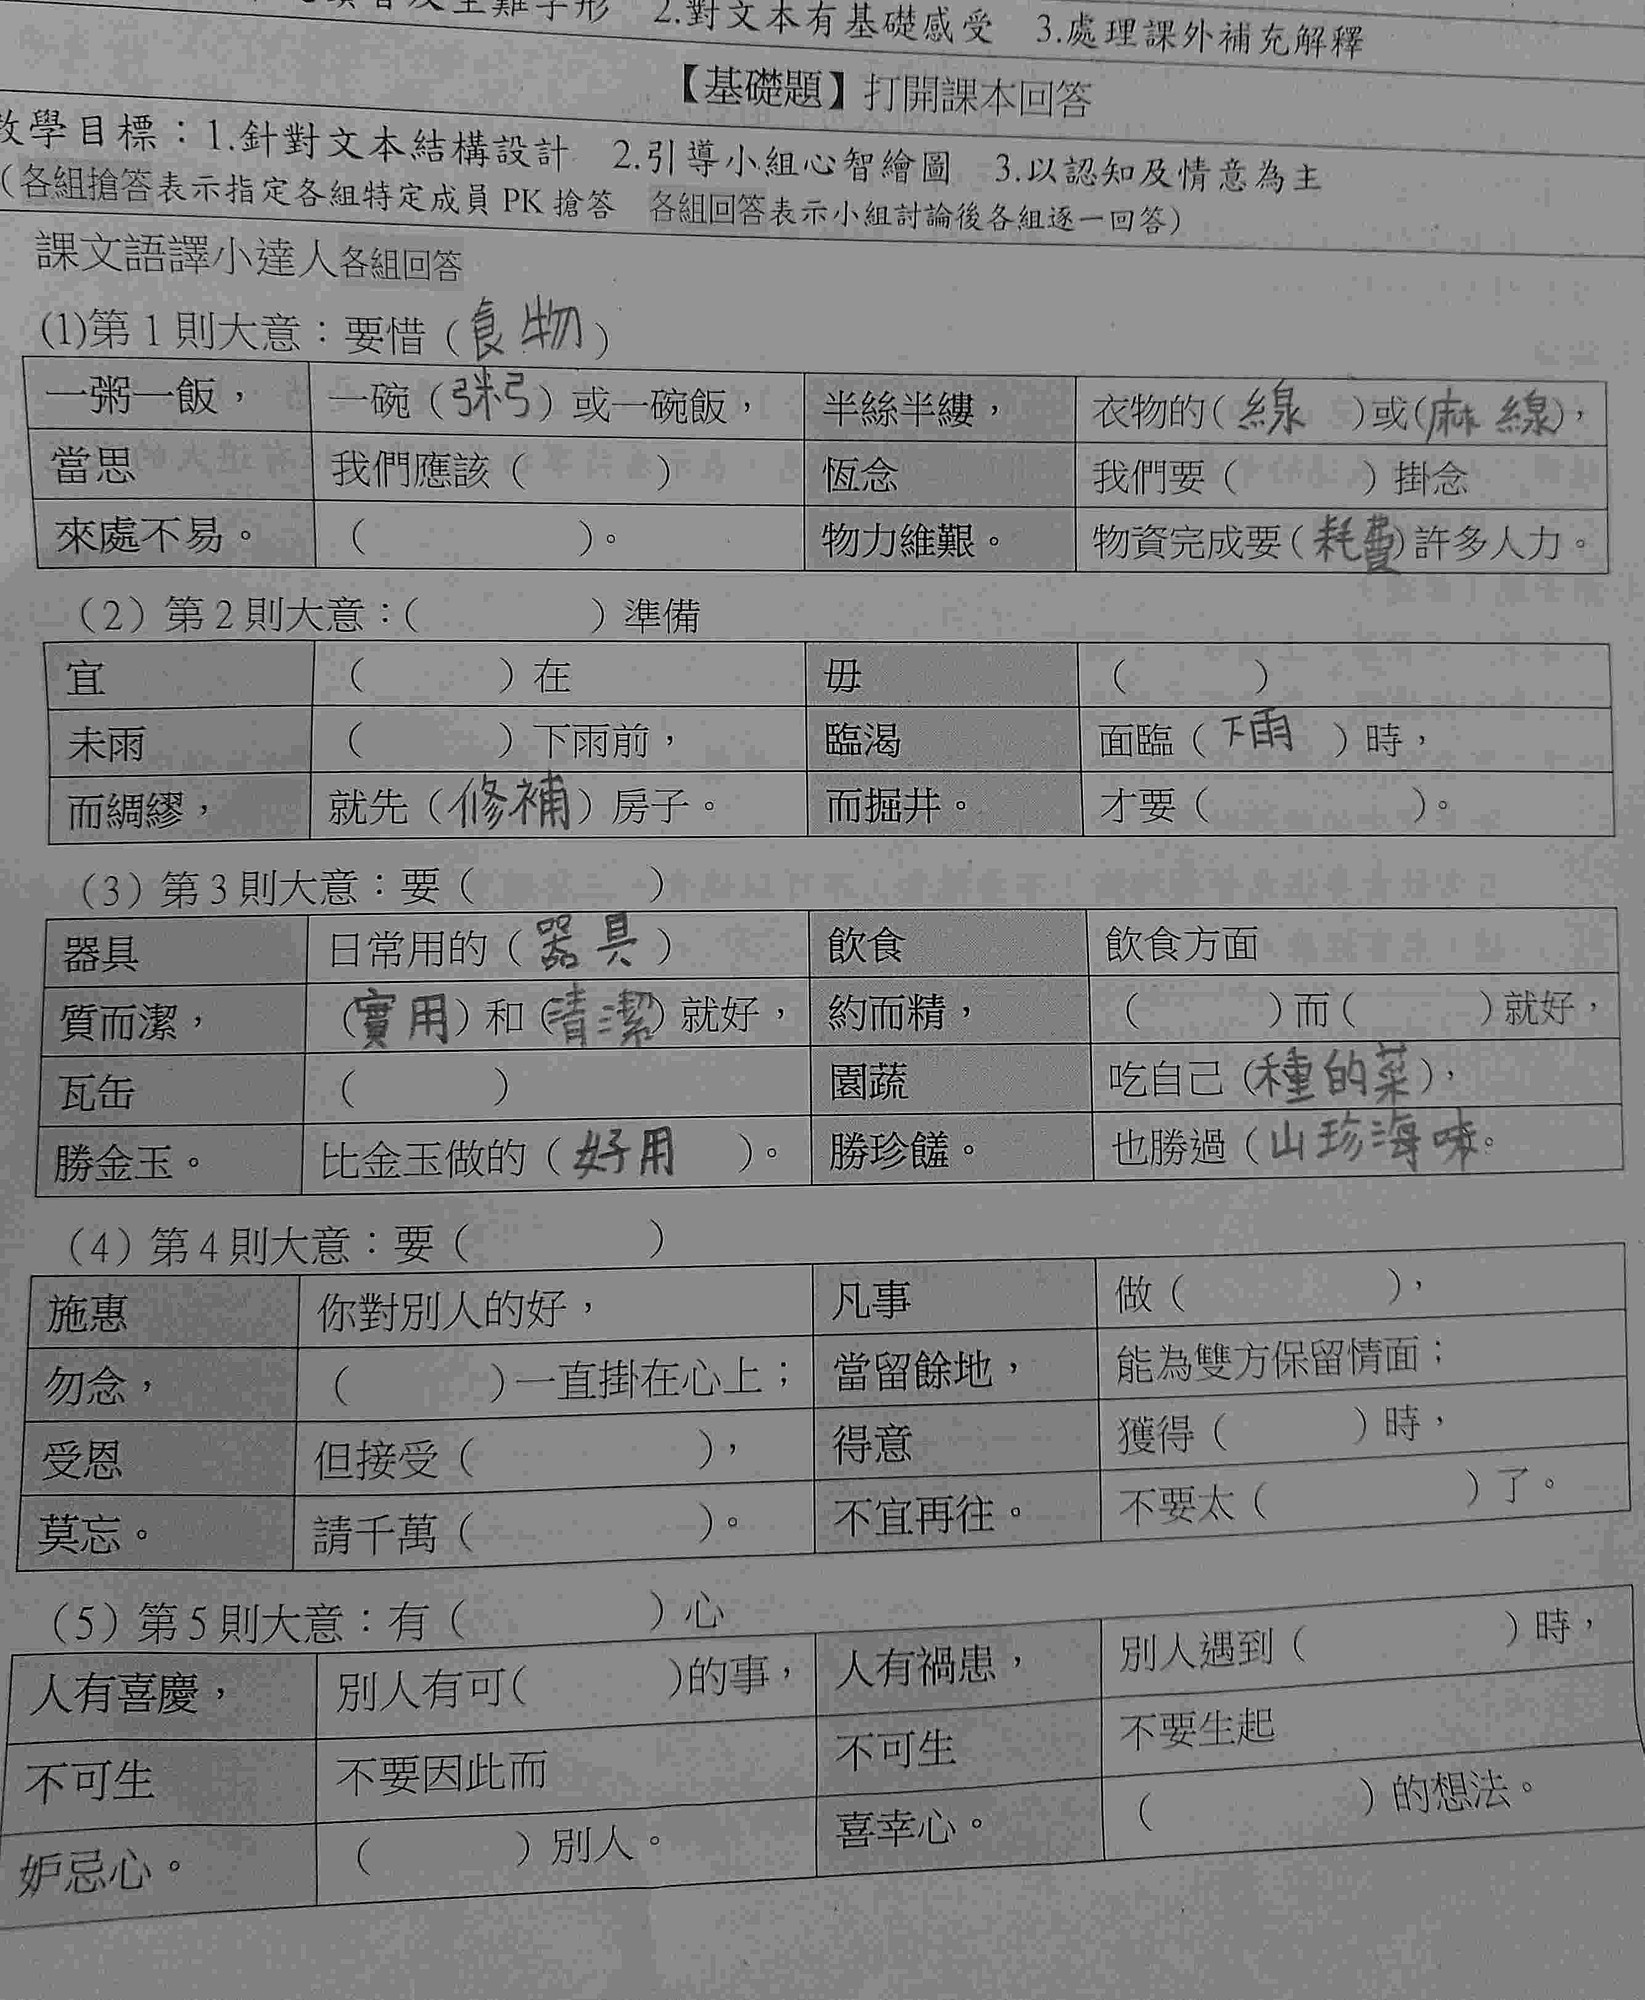 及生難字形 2.對文本有基礎感受 3.處理課外補充解釋
【基礎題】打開課本回答
教學目標：1.針對文本結構設計 2.引導小組心智繪圖 3.以認知及情意為主
（各組搶答表示指定各組特定成員 PK 搶答 各組回答表示小組討論後各組逐一回答）
課文語譯小達人各組回答
(1)第1則大意：要惜（食物）
一粥一飯， 一碗（粥）或一碗飯， 半絲半縷， 衣物的(線 )或(麻線)，
當思 我們應該（ ） 恆念 我們要（ ）掛念
來處不易。 （ ）。 物力維艱。 物資完成要(耗費)許多人力。
（2）第2則大意：( ）準備
宜 （ ）在 毋 （ ）
未雨 （ ）下雨前， 臨渴 面臨（下雨 ）時，
而綢繆， 就先（修補）房子。 而掘井。 才要（ ）。
（3）第3則大意：要（ ）
器具 日常用的（器具） 飲食 飲食方面
質而潔， （實用）和（清潔）就好， 約而精， （ ）而（ ）就好，
瓦缶 （ ） 園蔬 吃自己(種的菜)，
勝金玉。 比金玉做的（好用 ）。 勝珍饈。 也勝過（山珍海味。
（4）第4則大意：要（ ）
施惠 你對別人的好， 凡事 做（ ），
勿念， （ ）一直掛在心上； 當留餘地， 能為雙方保留情面；
受恩 但接受（ ）， 得意 獲得（ ）時，
莫忘。 請千萬（ ）。 不宜再往。 不要太（ ）了。
（5）第5則大意：有（ ）心
人有喜慶， 別人有可( )的事， 人有禍患， 別人遇到（ ）時，
不可生 不要因此而 不可生 不要生起
妒忌心。 （ ）別人。 喜幸心。 （ ）的想法。